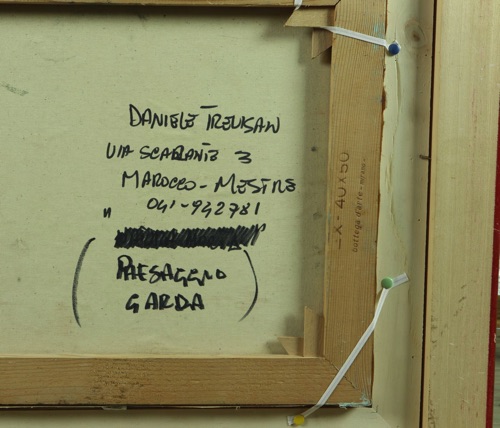 DANIELE TREVISAN
VIA SCARANTE 3
MAROCCO - MESTRE
041-942781
"
(PAESAGGIO
GARDA)
EX - 40x50
bottega d'arte -